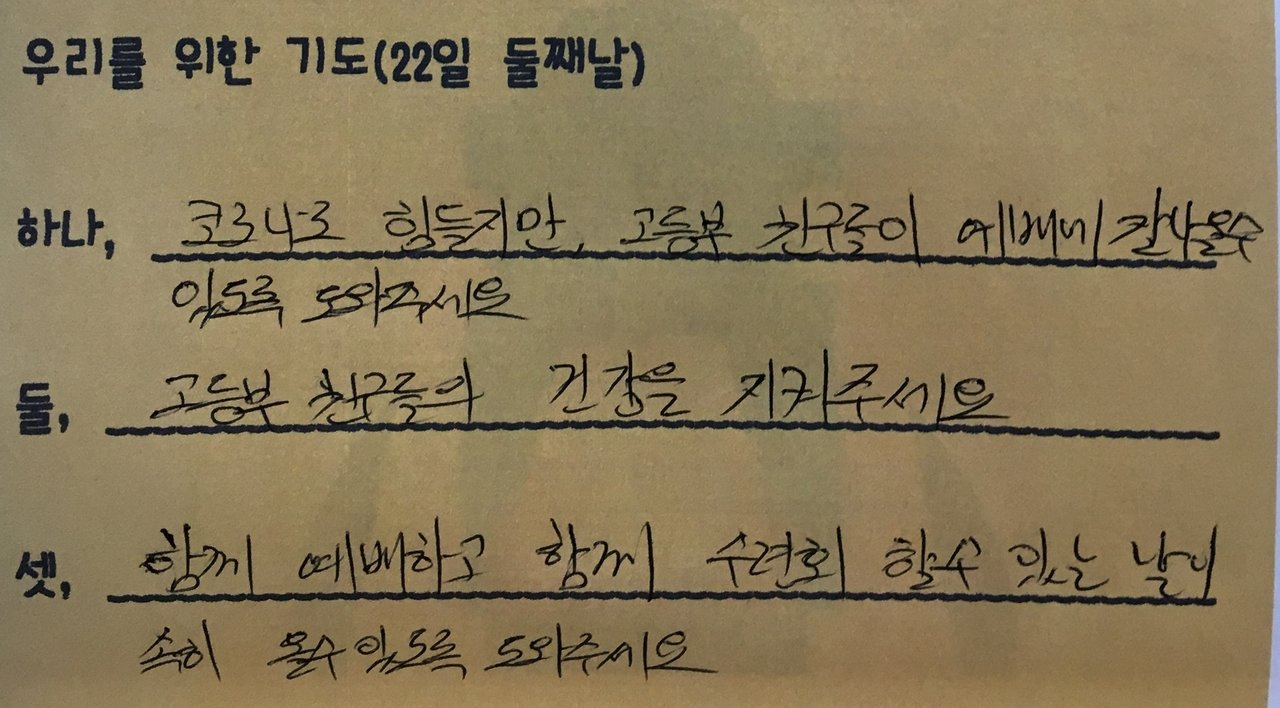 우리를 위한 기도(22일 둘째날)
하나, 코로나로 힘들지만, 고등부 친구들이 예배에 잘나올수
있도록 도와주세요
둘, 고등부 친구들의 건강을 지켜주세요
셋, 함께 예배하고 함께 수련회 할수 있는 날이
속히 올수있도록 도와주세요